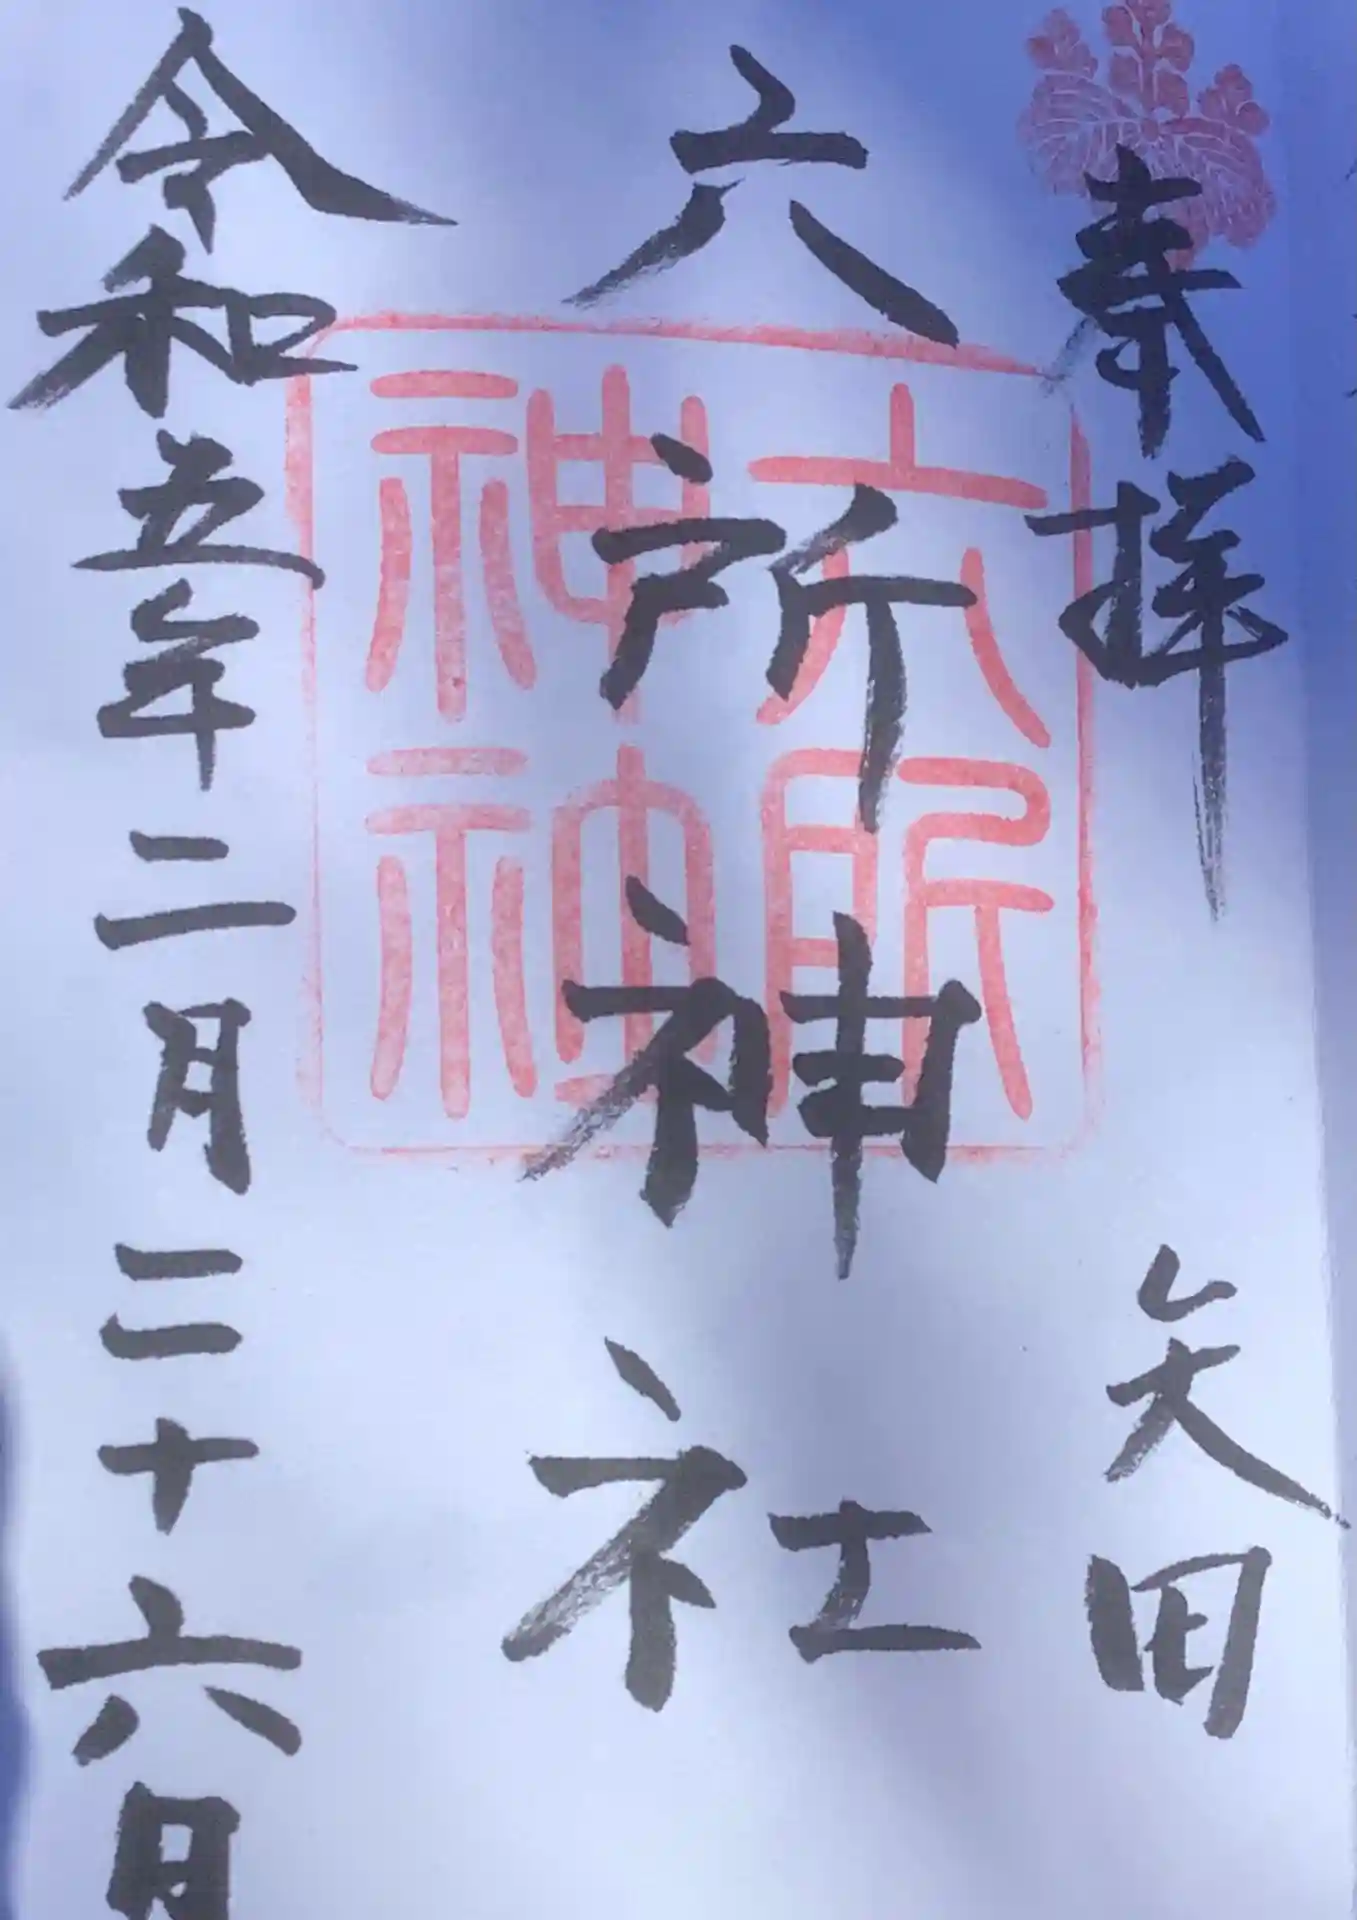 奉拝 矢田
六所神社
令和五年二月二十六日
六所神神